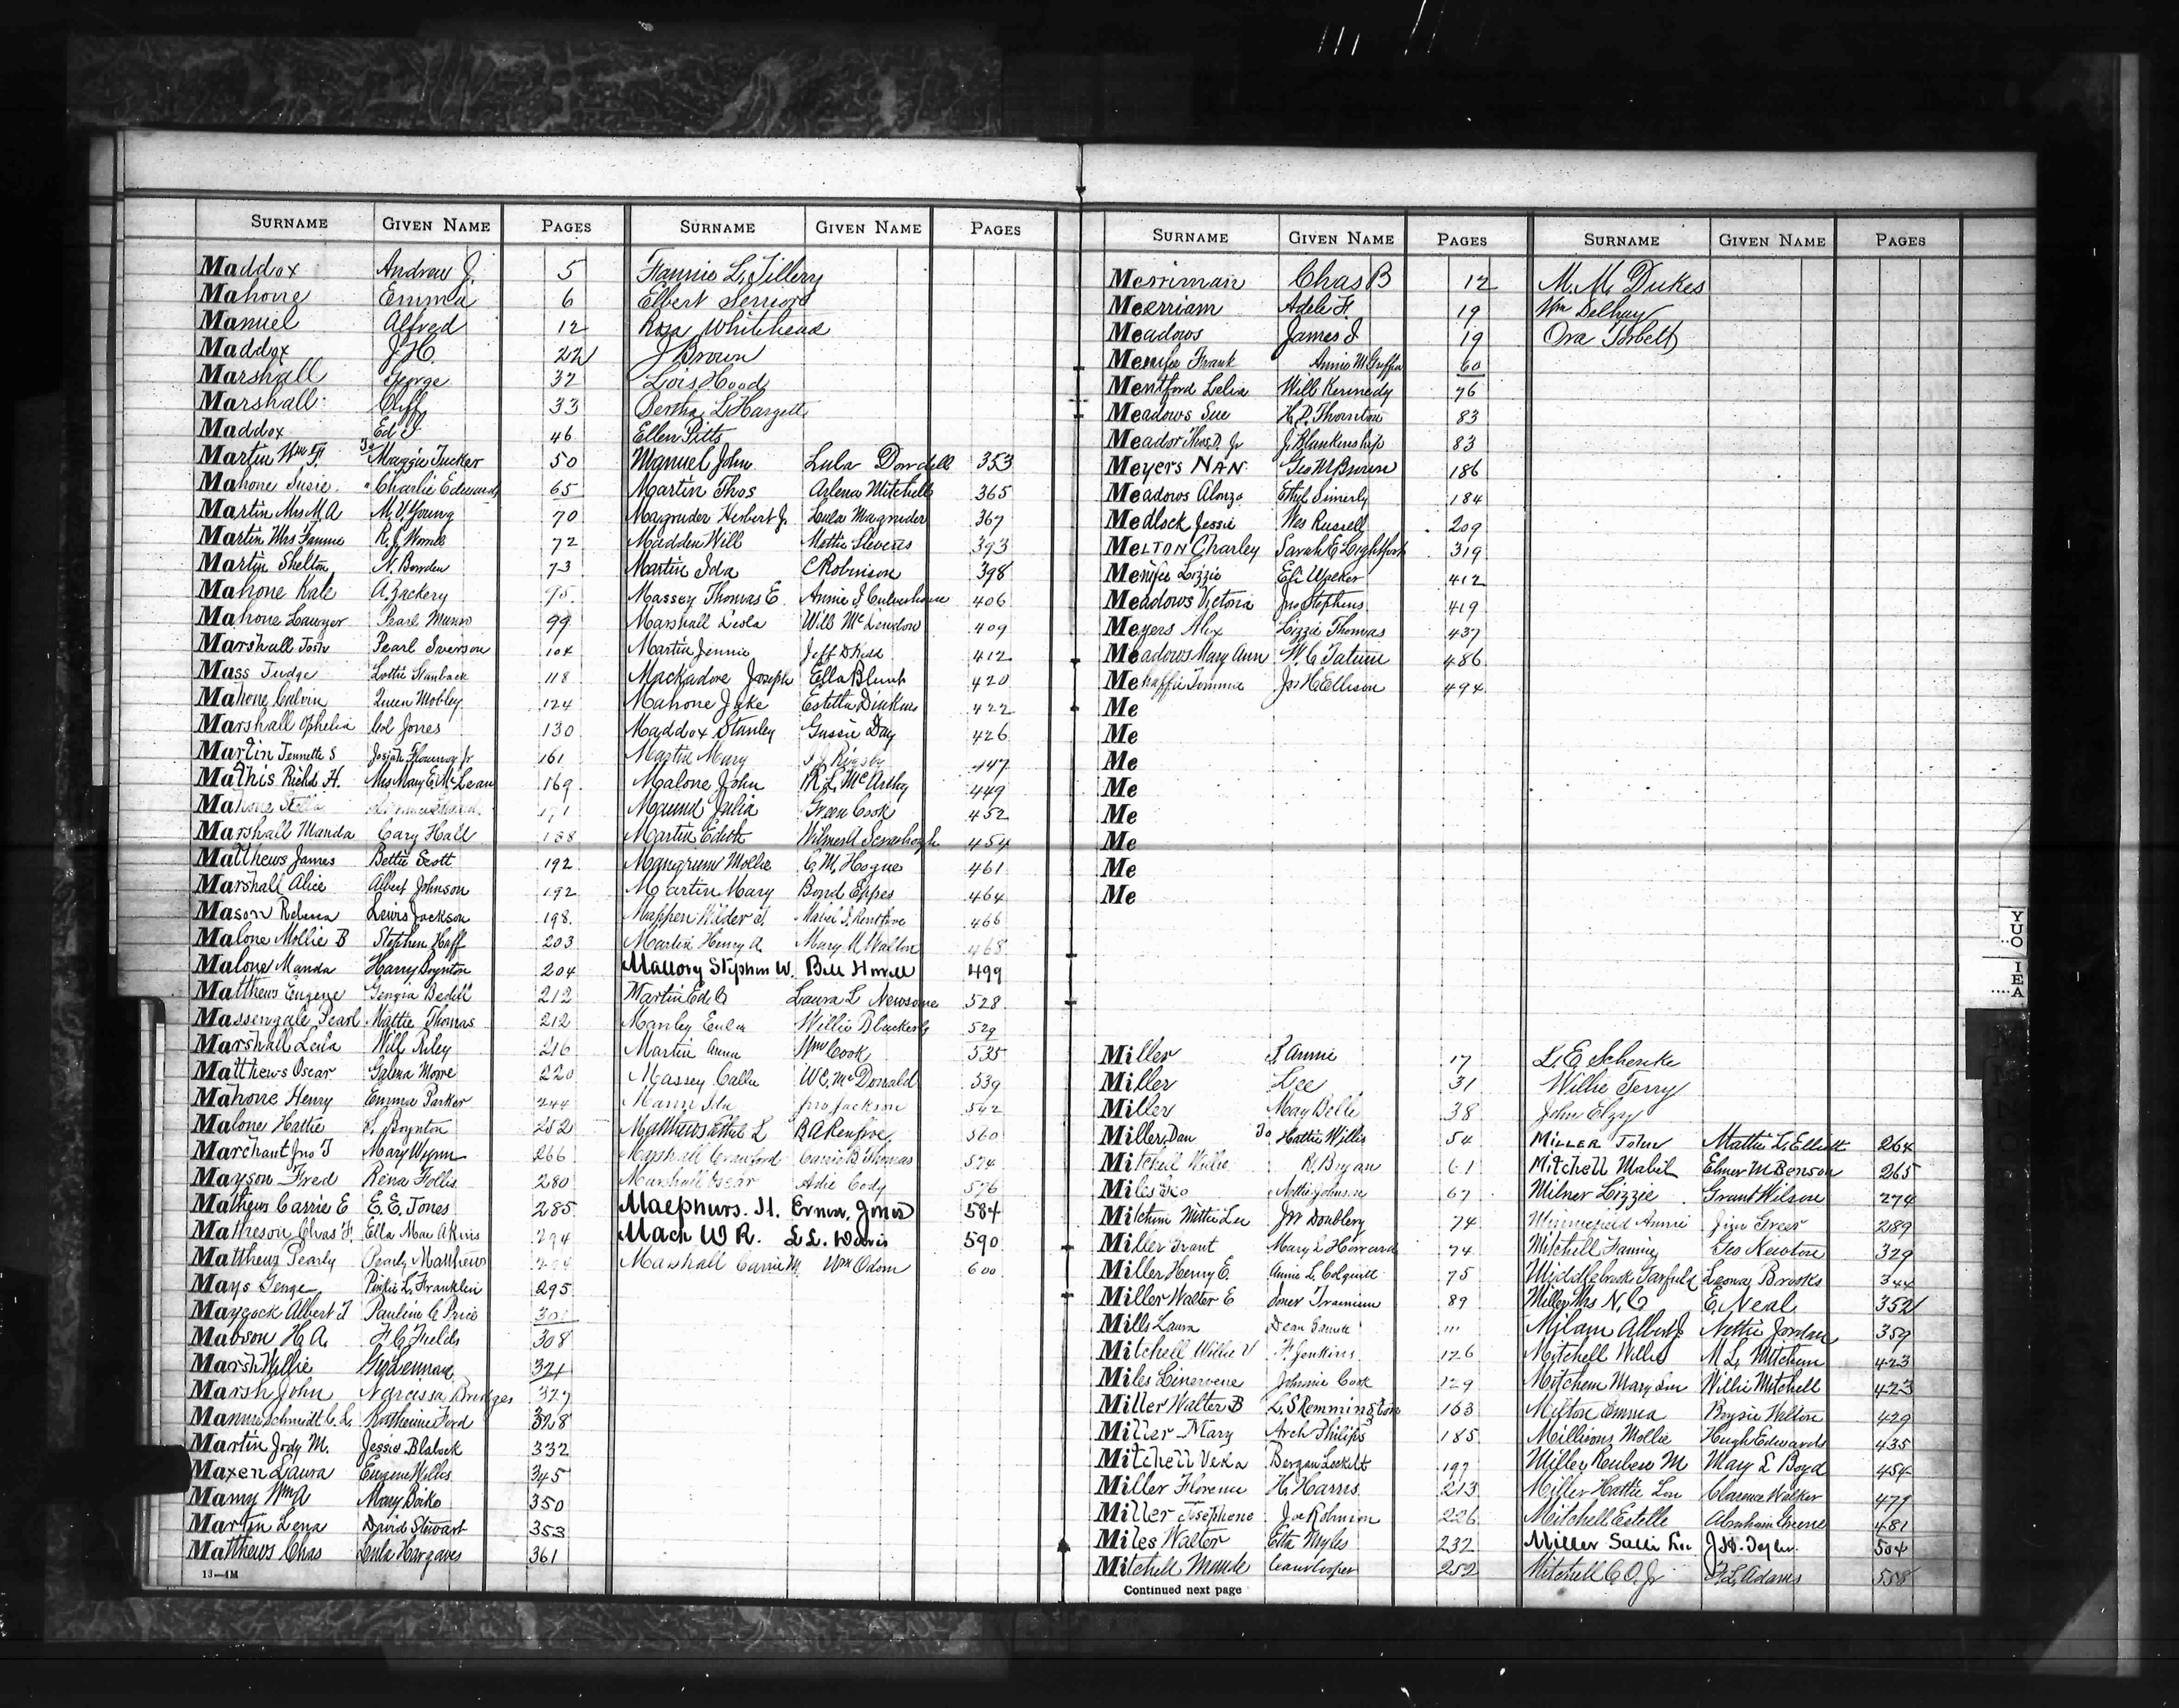 SURNAME GIVEN NAME PAGES SURNAME GIVEN NAME PAGES
Maddox Andrew J. 5 Fannie L. Tillery
Mahone Emma 6 Elbert
Manuel Alfred 12 Rosa Whitehead
Maddox J.H. 22 J Brown
Marshall George 32 Lois Hood
Marshall Cliff 33 Bertha L. Hargett
Maddox Ed J 46 Ellen Pitts
Martin Wm F. To Maggie Tucker 50 Manuel John Lula Dowdell 353
Mahone Susie " Charlie Edwards 65 Martin Thos Arlena Mitchell 365
Martin Mrs M A M.V. Young 70 Magruder Herbert J. Lula Magruder 367
Martin Mrs Fannie R.J. 72 Madden Will Mattie Stevens 393
Martin Shelton N. Bowden 73 Martin Ida C Robinson 398
Mahone Kate A. Zackery Massey Thomas E. Annie J Culverhouse 406
Mahone Lawyer Pearl Munn 99 Marshall Leola Will McLendon 409
Marshall Josh Pearl Iverson 104 Martin Jennie Jeff D Kidd 412
Mass Judge Lottie Stanback 118 Mackadore Joseph Ella Blunt 420
Mahone Calvin Queen Mobley 124 Mahone Jake Estella Dinkins 422
Marshall Ophelia Col Jones 130 Maddox Stanley Gussie Day 426
Martin Jennette S Josiah Flournoy Jr 161 Martin Mary Rigsby 447
Mathis Richd H. Mrs Mary E. McLean 169 Malone John R.L. McArthy 449
Mahone Stella 171 Maund Julia Green Cook 452
Marshall Manda Cary Hall 188 Martin Edith Wilmer A 454
Matthews James Bettie Scott 192 Mangrum Mollie C.M. Hogue 461
Marshall Alice Albert Johnson 192 Martin Mary Bond Eppes 464
Mason Rebecca Lewis Jackson 198 Mappen Wilder J. Mabel J. Renfroe 466
Malone Mollie B Stephen Huff 203 Martin Henry A. Mary M Walton 468
Malone Manda Harry Boynton 204 Mallory Stephen W. Bell Howell 499
Matthews Eugene Georgia Bedell 212 Martin Ed C Laura L Newsome 528
Massengale Pearl Mattie Thomas 212 Manley Eula Willie 529
Marshall Leila Will Riley 216 Martin Anna Wm Cook 535
Matthews Oscar Galena Moore 220 Massey Callie W.C. McDonald 539
Mahone Henry Emma Parker 244 Mann Ida Jno Jackson 542
Malone Hattie S. Boynton 252 Matthews Ethel L B A Renfroe 560
Marchant Jno T Mary Wynn 266 Marshall Crawford Carrie B Thomas 574
Mayson Fred Rena Follis 280 Marshall Oscar Adie Cody 576
Mathews Carrie E E.E. Jones 285 584
Matheson Chas F. Ella Mae Akins 294 Mach W R. L L. Davis 590
Matthews Pearly Pearly Matthews Marshall Carrie M. Wm Odom 600
Mays George Pinkie L. Franklin 295
Maycock Albert J Pauline C Price
Mabson H.A. F C Fields 308
Marsh Willie 321
Marsh John Narcissa Bridges 327
C.L. Katherine Ford 328
Martin Jody M. Jessie Blalock 332
Maxen Laura Eugene Willis 345
Mamy Wm A Mary Boiko 350
Martin Lena David Stewart 353
Matthews Chas Lula Hargaves 361
13—4M
SURNAME GIVEN NAME PAGES SURNAME GIVEN NAME PAGES
Merriman Chas B 12 M.M. Dukes
Meerriam Adele F. 19 Wm
Meadows James J 19 Ora Torbett
Menifee Frank Annie M Griffin 60
Mentford Lelia Will Kennedy 76
Meadows Sue H.P. Thornton 83
Meador Thos. D. Jr J. Blankenship 83
Meyers NAN Geo M Brown 186
Meadows Alonzo Ethel Simerly 184
Medlock Jessie Wes Russell 209
MELTON Charley Sarah E Lightfoot 319
Menifee Lizzie Eli Walker 412
Meadows Victoria Jno Stephens 419
Meyers Alex Lizzie Thomas 437
Meadows Mary Ann W.C. Tatum 486
Mehaffie Tommie Jas H Ellison 494
Me
Me
Me
Me
Me
Me
Me
Me
Miller Annie 17 L.E. Schenke
Miller Lee 31 Willie Terry
Miller May Belle 38 John Elzy
Miller, Dan To Hattie Willis 54 MILLER John Mattie L. Elliott 264
Mitchell Willie R. Bryan 61 Mitchell Mabel Elmer M Benson 265
Miles Geo Nettie Johnson 67 Milner Lizzie Grant Wilson 274
Mitchim Mittie Lee Doublery 74 Annie Jim Greer 289
Miller Grant Mary L Howard 74 Mitchell Fanny Geo Newton 329
Miller Henry E. Annie L. Colquitt 75 Middlebrooks Garfield Leona Brooks 344
Miller Walter E 89 Miller Mrs N.C E. Neal 352
Mills Laura Dean 111 Milam Albert J Nettie Jordan 359
Mitchell Willie V F. Jenkins 126 Mitchell Willie M L. Mitchem 423
Miles Johnnie Cook 129 Mitchem Mary Lou Willie Mitchell 423
Miller Walter B L.S Remmington 163 Milton Emma Boysie Walton 429
Miller Mary Arch Philips 185 Millions Mollie Hugh Edwards 435
Mitchell Veka Bergan Lockett 197 Miller Reuben M Mary L Boyd 454
Miller Florence H. Harris 213 Miller Hattie Lou Clarence Walker 477
Miller Josephene Joe Robinson 226 Mitchell Estelle Abraham Greene 481
Miles Walter Etta Myles 232 Miller Sallie Lou J.H. Taylor 504
Mitchell Maude 252 Mitchell C.O. Jr F.L. Adams 558
Continued next page